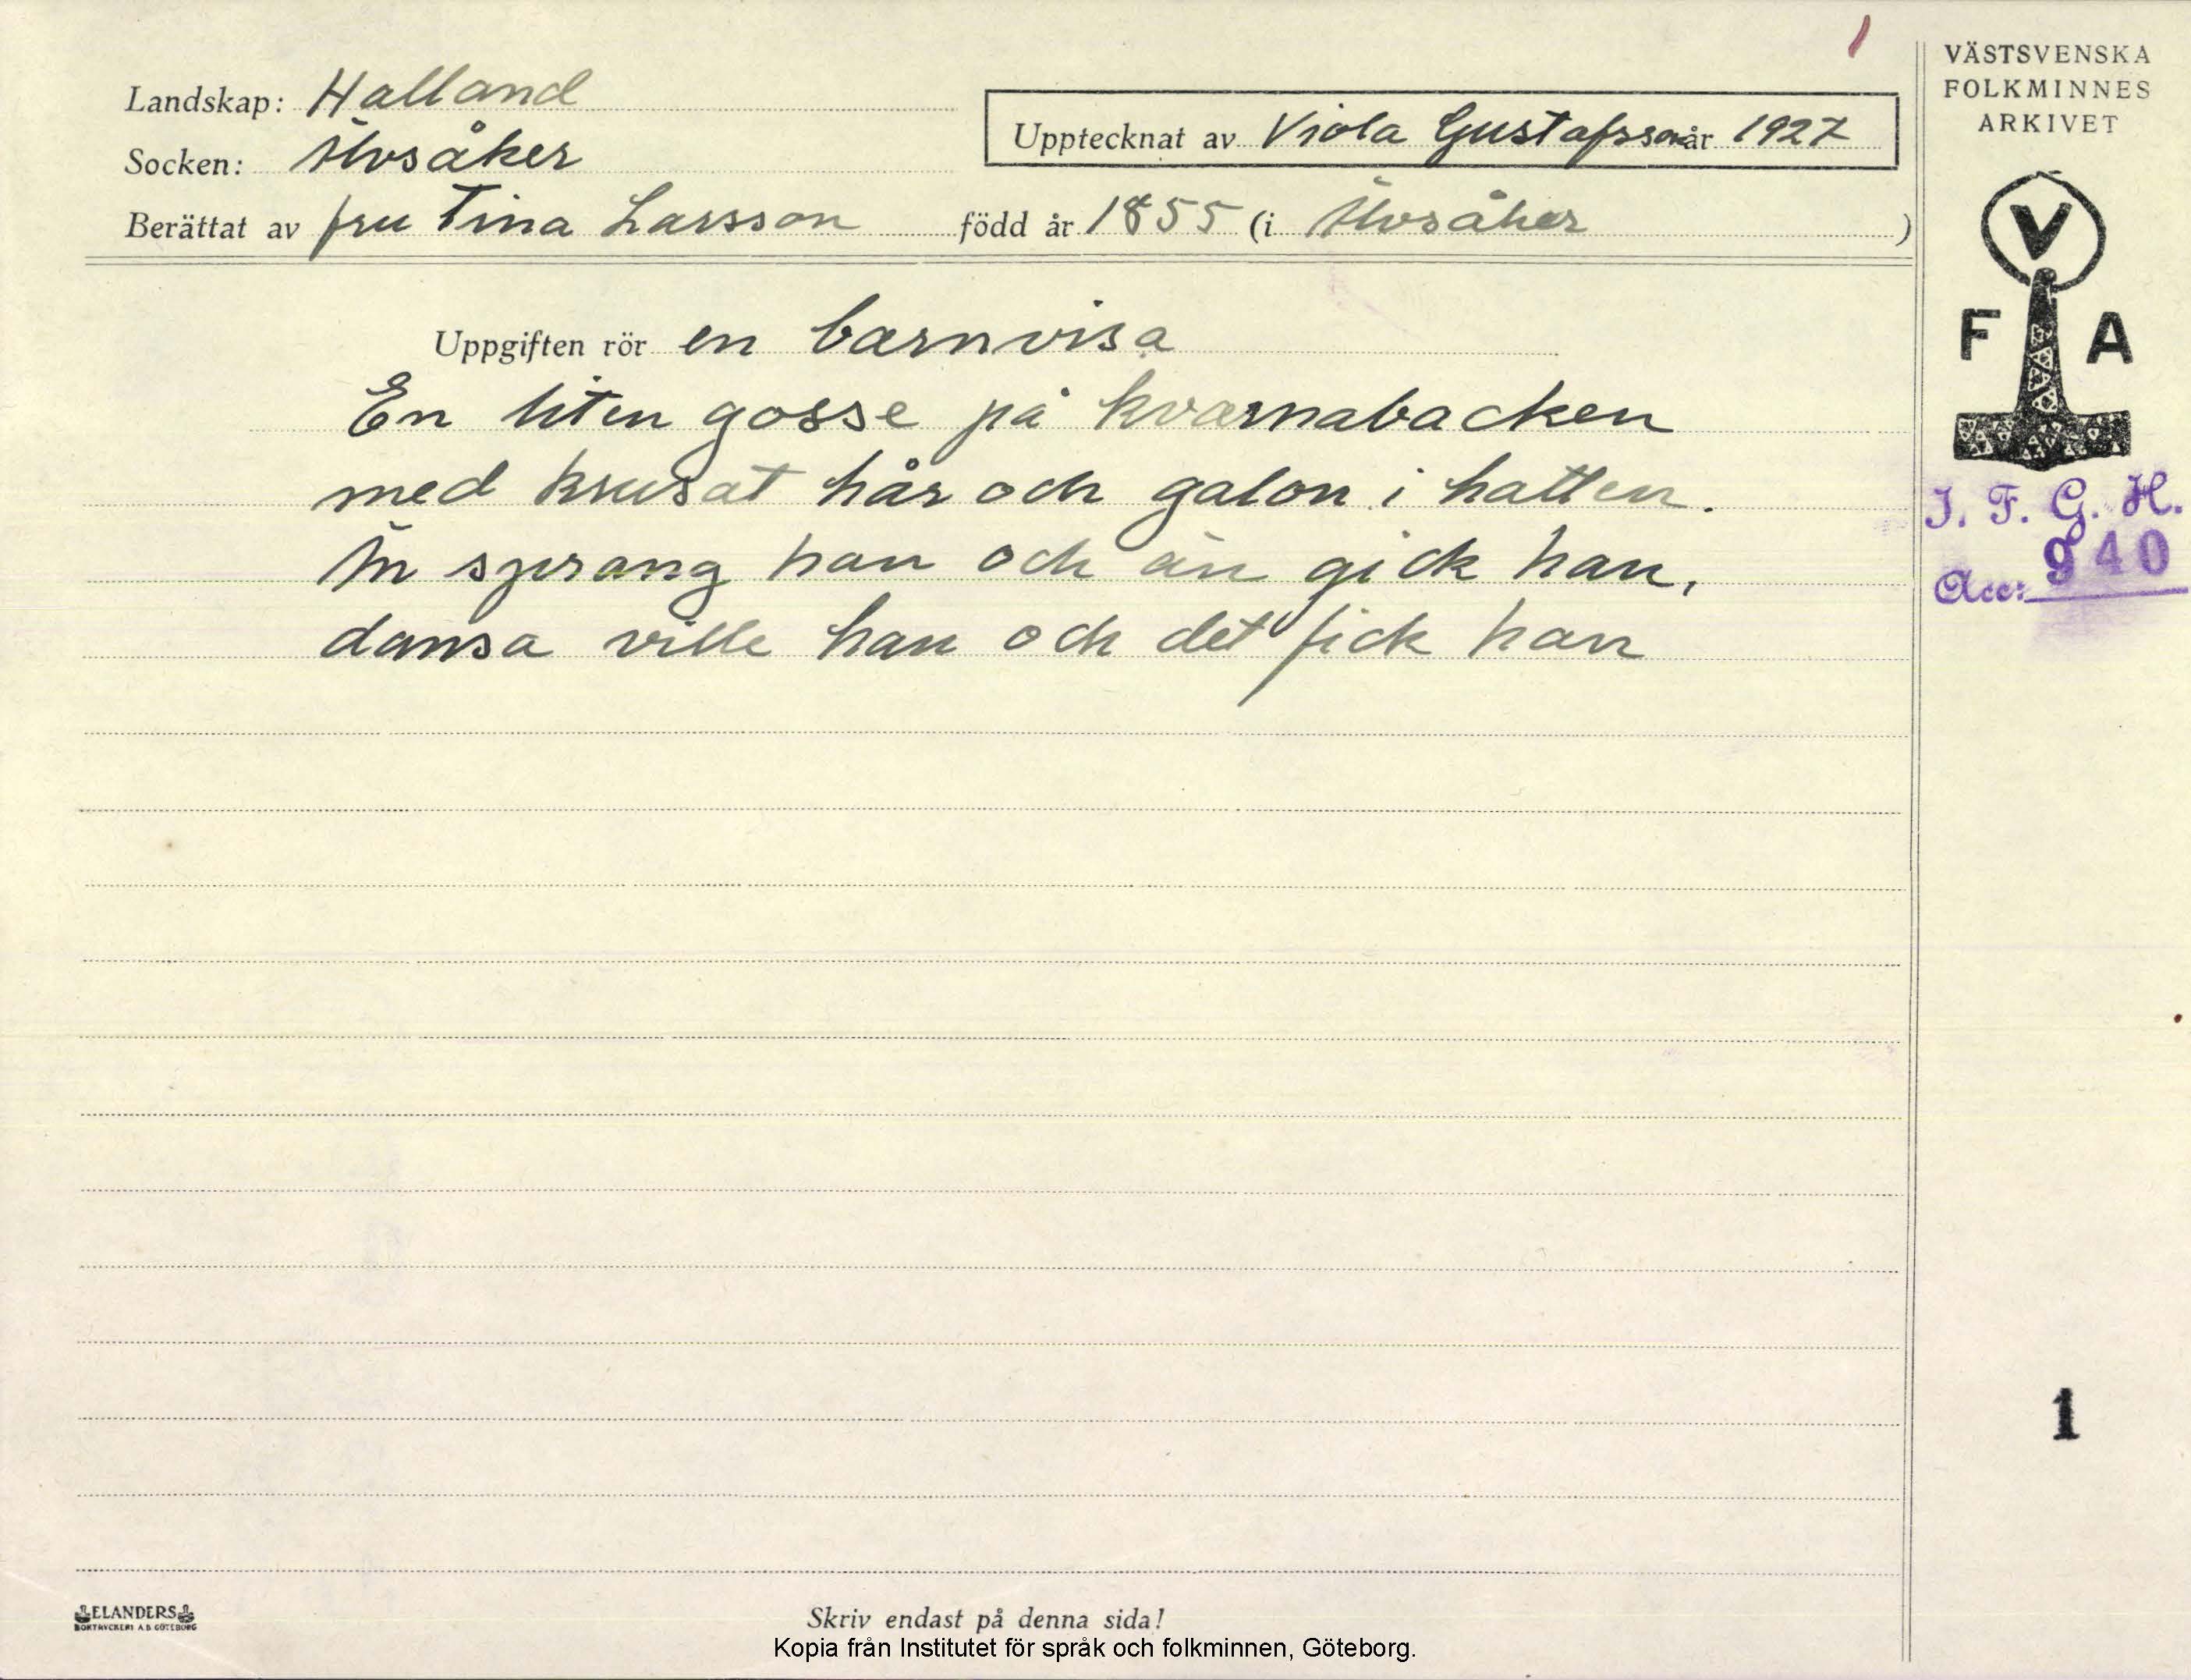 1
Landskap: Halland
Socken: Älvsåker
Upptecknat av Viola Gustafsson år 1927
Berättat av fru Tina Larsson född år 1855 (i Älvsåker )
Uppgiften rör en barnvisa
En liten gosse på kvarnabacken
med krusat hår och galon i hatten.
Än sprang han och än gick han,
dansa ville han och det fick han
VÄSTSVENSKA
FOLKMINNES
ARKIVET
V
F A
I. F. G. H.
Acc: 940
1
ELANDERS
BOKTRYCKERI A.B. GÖTEBORG
Skriv endast på denna sida!
Kopia från Institutet för språk och folkminnen, Göteborg.